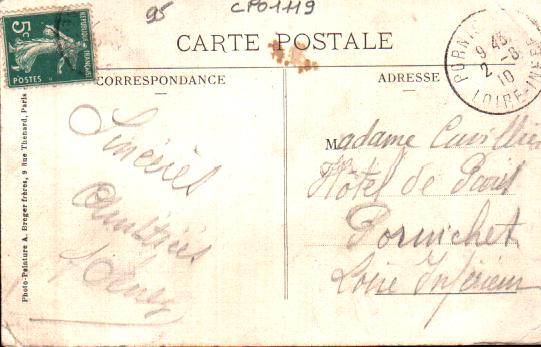 95
CP01119
5c
POSTES
CARTE POSTALE
CORRESPONDANCE
ADRESSE
9 45
2 -8
10
LOIRE-INF
Photo-Peinture A. Breger frères, 9 Rue Thénard, Paris
Sincères
Amitiés
Madame
Hôtel de Paris
Pornichet
Loire Inférieure